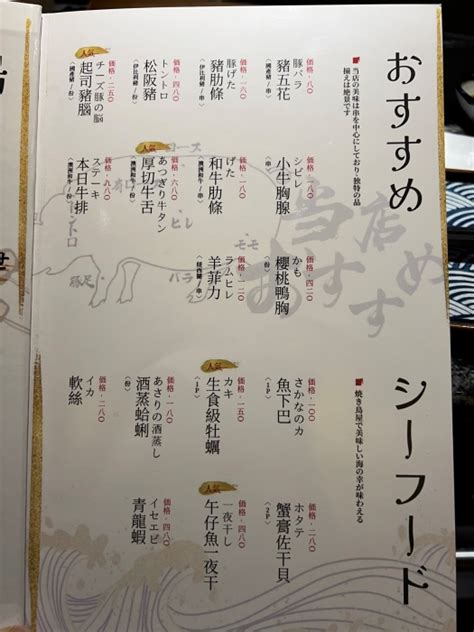 おすすめ
当店の美味は串を中心にしており、独特の品
揃えは絶景です
価格・八〇
豚バラ
豬五花
(伊比利豬/串)
価格・一六〇
豚げた
豬肋條
(伊比利豬/串)
価格・四八〇
トントロ
松阪豬
(伊比利豬/份)
人氣
価格・二五〇
チーズ豚の脳
起司豬腦
(國產豬/份)
シビレ
小牛胸腺
げた
和牛肋條
人氣
価格・六八〇
あつぎり牛タン
厚切牛舌
価格・九八〇
ステーキ
本日牛排
価格・四二〇
かも
櫻桃鴨胸
(份)
価格・一二〇
ラムヒレ
羊菲力
ロース
ヒレ
モモ
バラ
豚足
当店
おすすめ
シーフード
焼き鳥屋で美味しい海の幸が味わえる
価格・一〇〇
さかなのカ
魚下巴
(串)
人氣
価格・一五〇
カキ
生食級牡蠣
(1P)
価格・一八〇
あさりの酒蒸し
酒蒸蛤蜊
(份)
価格・二八〇
イカ
軟絲
価格・二八〇
ホタテ
蟹膏佐干貝
(2P)
人氣
価格・四八〇
一夜干し
午仔魚一夜干
価格・四八〇
イセエビ
青龍蝦